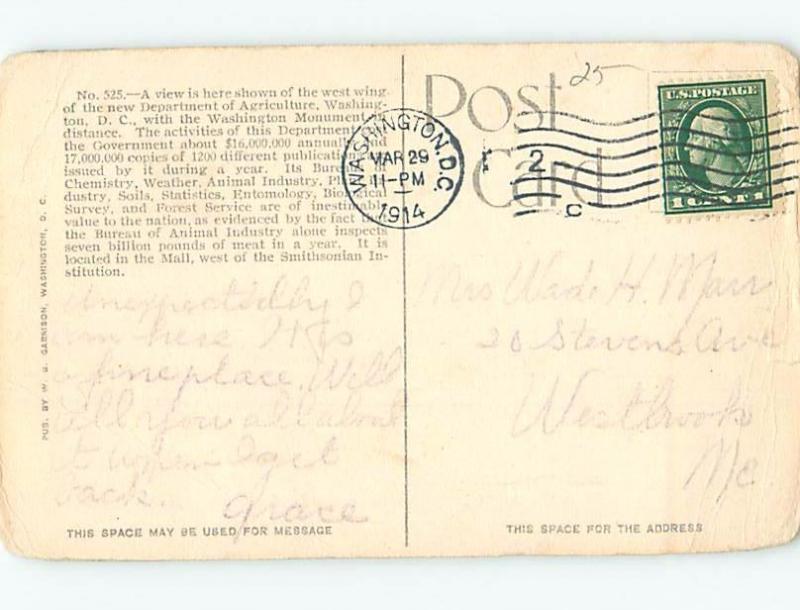 No. 525.—A view is here shown of the west wing
of the new Department of Agriculture, Washing-
ton, D. C., with the Washington Monument
distance. The activities of this Department
the Government about $16,000,000 annual and
17,000,000 copies of 1200 different publicati
issued by it during a year. Its Bure
Chemistry, Weather, Animal Industry, Pl
dustry, Soils, Statistics, Entomology, Biological
Survey, and Forest Service are of inestimable
value to the nation, as evidenced by the fact
the Bureau of Animal Industry alone inspects
seven billion pounds of meat in a year. It is
located in the Mall, west of the Smithsonian In-
stitution.
PUB. BY W. B. GARRISON, WASHINGTON, D. C.
Unexpectedly I
am here It is
a fine place. Will
tell you all about
it when I get
back.
Grace
THIS SPACE MAY BE USED FOR MESSAGE
Post
Card
25
WASHINGTON, D.C.
MAR 29
11-PM
1914
2
C
U.S. POSTAGE
1 CENT 1
Mrs Wade H. Marr
20 Stevens Ave
Westbrook
Me
THIS SPACE FOR THE ADDRESS